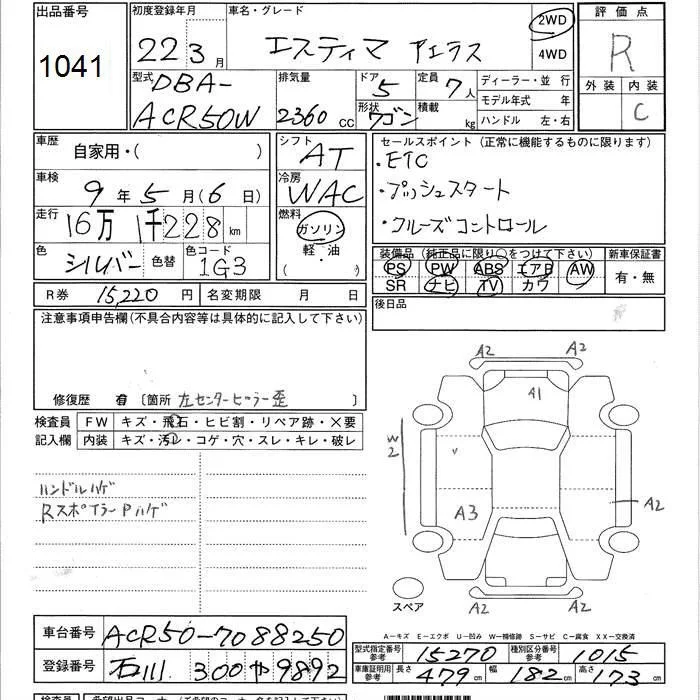 出品番号 初度登録年月 車名・グレード 2WD 評価点
1041 22 3月 エスティマ アエラス 4WD R
型式 DBA- 排気量 ドア 5 定員 7人 ディーラー・並行 外装 内装
ACR50W 2360 cc 形状 ワゴン 積載 kg モデル年式 年 C
ハンドル 左・右
車歴 自家用・( ) シフト AT セールスポイント (正常に機能するものに限ります)
・ETC
車検 9年5月(6日) 冷房 WAC ・プッシュスタート
走行 16万1千228km 燃料 ガソリン ・クルーズコントロール
軽・油
( )
色 シルバー 色替 色コード 1G3 装備品 (純正品に限り○をつけて下さい) 新車保証書
PS PW ABS エアB AW 有・無
SR ナビ TV カワ
R券 15,220円 名変期限 月 日 後日品
注意事項申告欄(不具合内容等は具体的に記入して下さい)
修復歴 有 〔箇所 左センターピラー歪 〕
検査員 FW キズ・飛石・ヒビ割・リペア跡・×要
記入欄 内装 キズ・汚レ・コゲ・穴・スレ・キレ・破レ
ハンドルハゲ
RスポイラーPハゲ
A2 A2
A1
W2
A3 A2
A2 A2
スペア
A-キズ E-エクボ U-凹み W-補修跡 S-サビ C-腐食 XX-交換済
車台番号 ACR50-7088250
型式指定番号 参考 15270 種別区分番号 参考 1015
登録番号 石川 300 や 9892
車庫証明用 参考 長さ 479cm 幅 182cm 高さ 173cm
検査員 希望出品コーナー